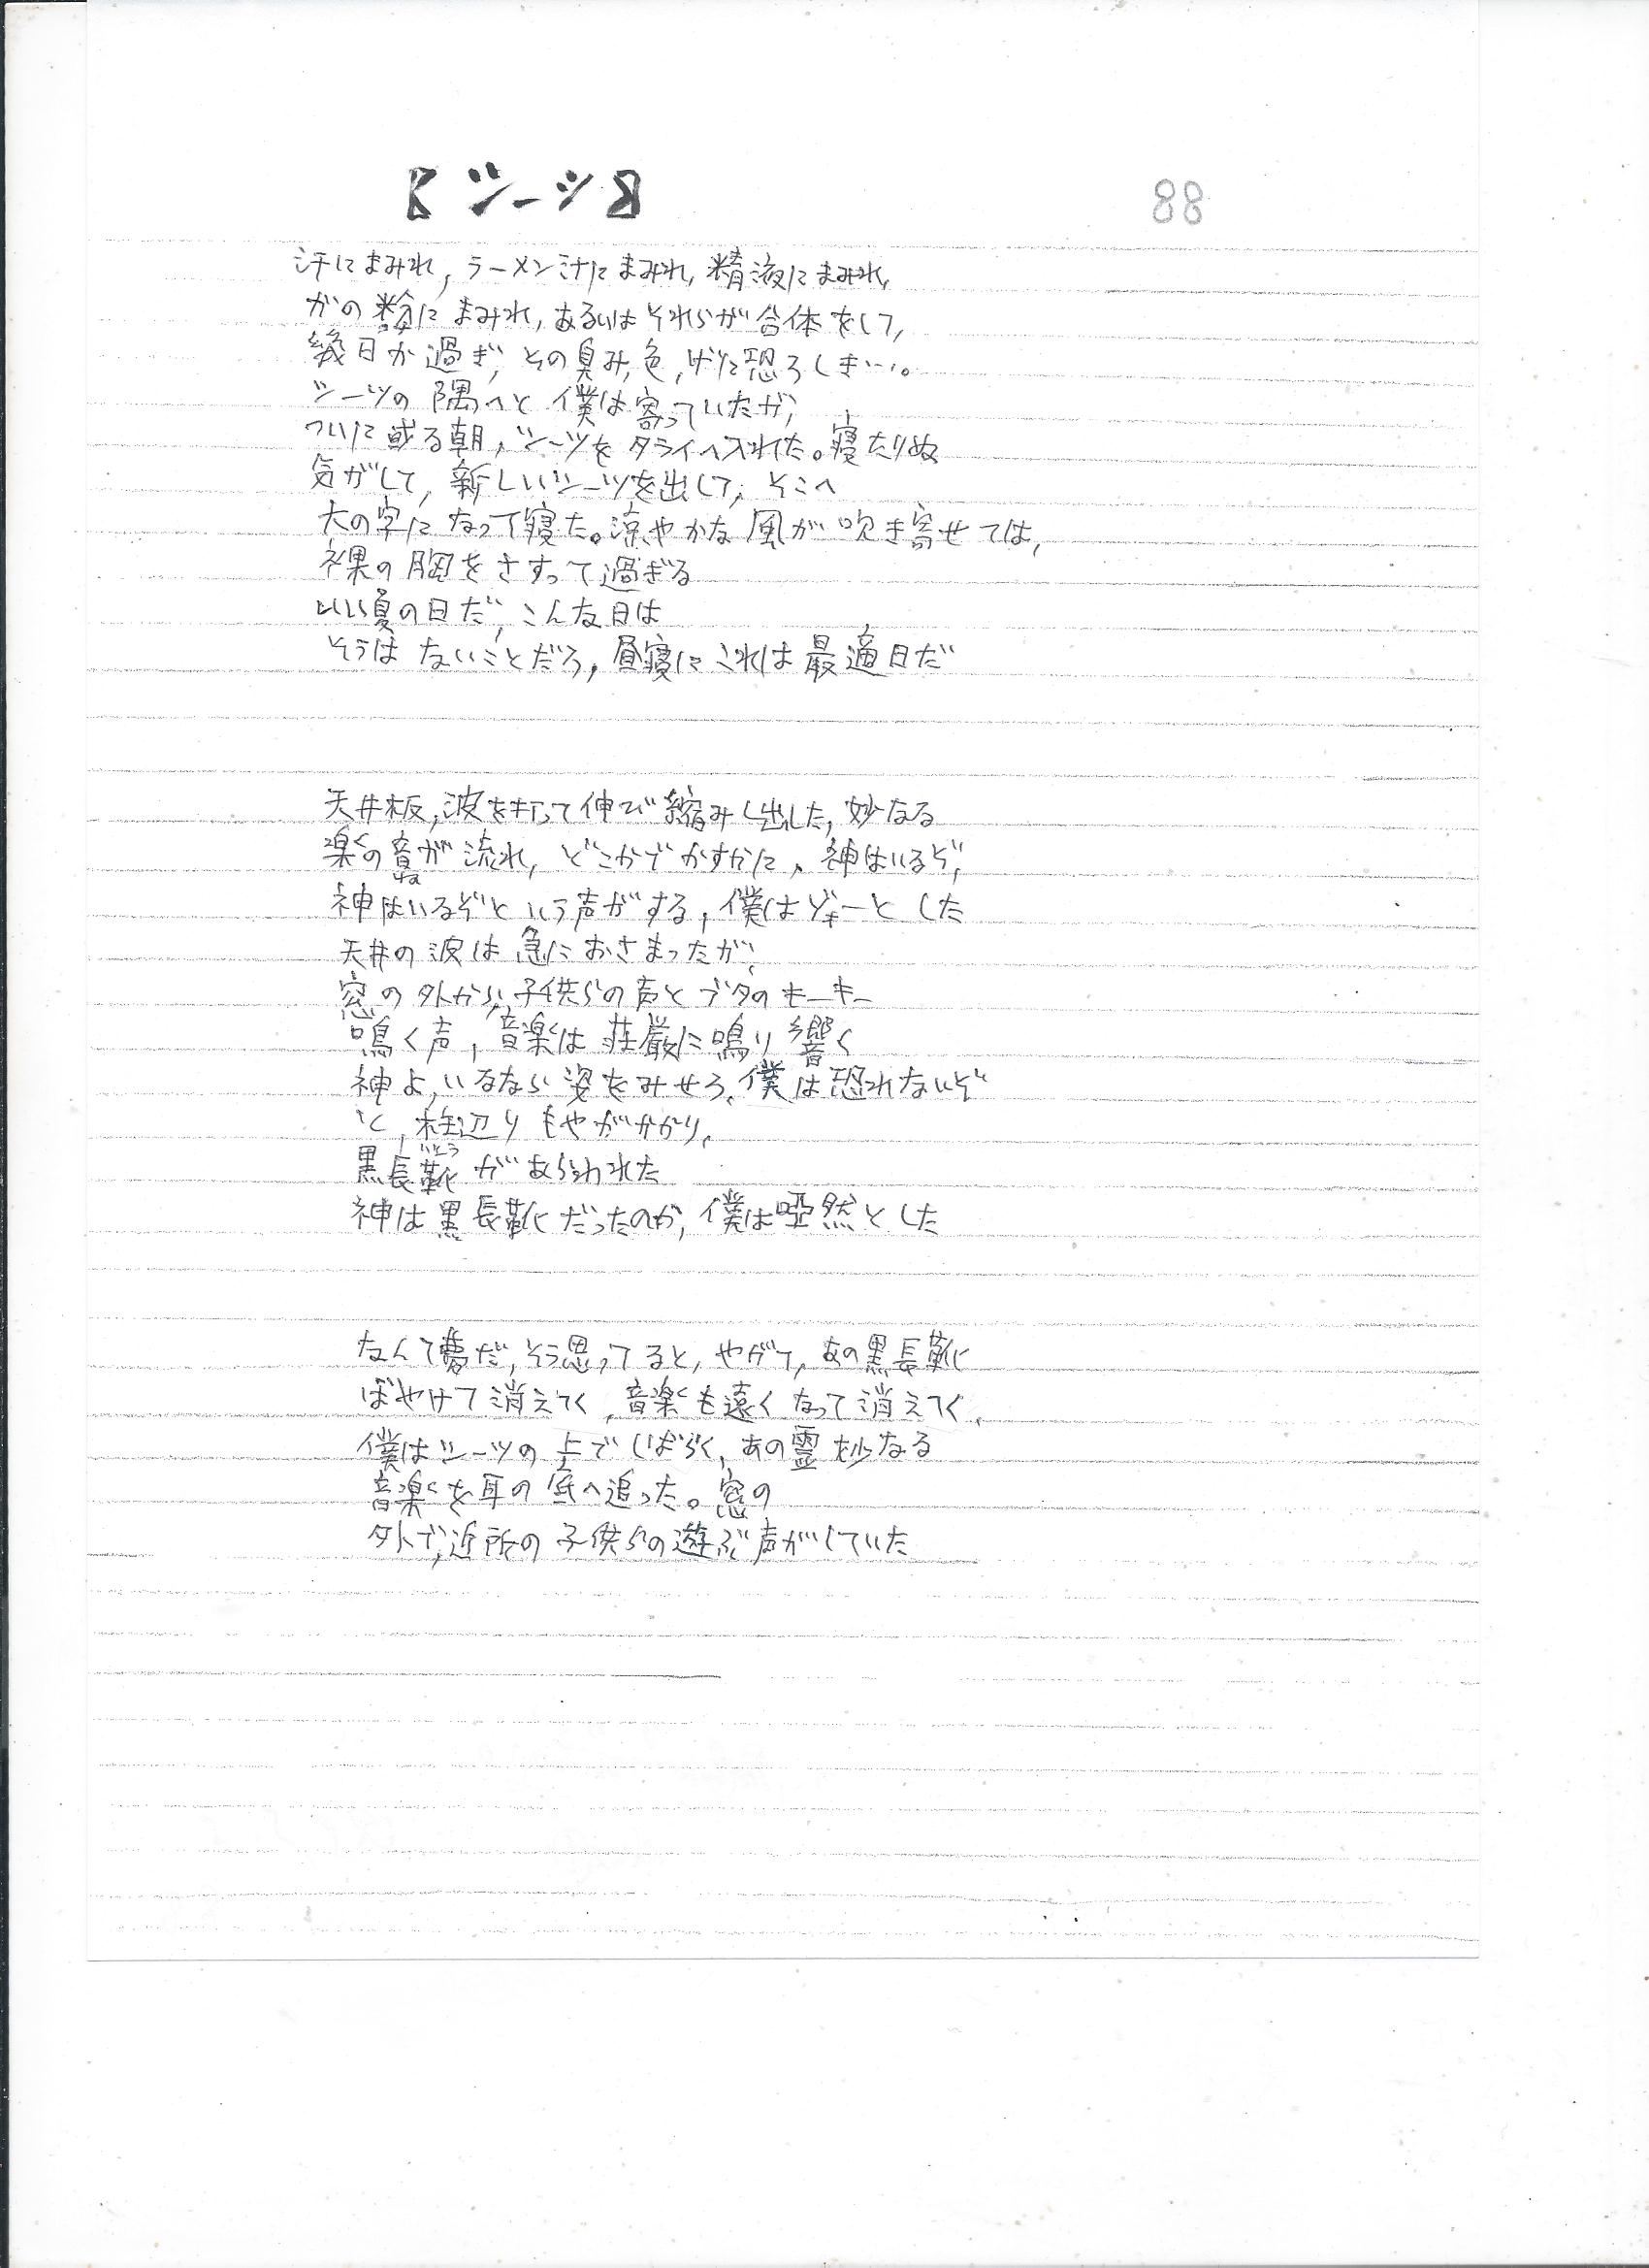 【シーツ】
88
汗にまみれ,ラーメン汁にまみれ,精液にまみれ,
がの粉にまみれ,あるいはそれらが合体をして,
幾日か過ぎ,その臭み,色,げに恐ろしき…。
シーツの隅へと僕は寄っていたが,
ついに或る朝,シーツをタライへ入れた。寝たりぬ
気がして,新しいシーツを出して,そこへ
大の字になって寝た。涼やかな風が吹き寄せては,
裸の胸をさすって過ぎる
いい夏の日だ,こんな日は
そうはないことだろ,昼寝にこれは最適日だ
天井板,波を打って伸び縮みし出した,妙なる
楽の音が流れ,どこかでかすかに,神はいるぞ,
ね
神はいるぞという声がする,僕はゾォーとした
天井の波は急におさまったが,
窓の外から,子供らの声とブタのキーキー
鳴く声,音楽は荘厳に鳴り響く
神よ,いるなら姿をみせろ,僕は恐れないぞ
と,柱辺りもやがかかり,
黒長靴があらわれた
神は黒長靴だったのか,僕は啞然とした
なんて夢だ,そう思ってると,やがて,あの黒長靴
ぼやけて消えてく,音楽も遠くなって消えてく,
僕はシーツの上でしばらく,あの霊妙なる
音楽を耳の底へ追った。窓の
外で,近所の子供らの遊ぶ声がしていた